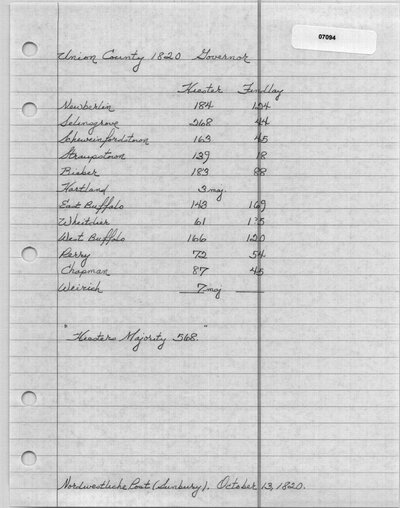 07094
Union County 1820 Governor
Hiester Findlay
Newberlin 184 124
Selinsgrove 268 44
Schweinfordstown 163 45
Straupstown 139 18
Bieber 183 88
Hartland 3 maj.
East Buffalo 143 169
61
West Buffalo 166 120
Perry 72 54
Chapman 87 45
Weirich 7 maj
"Hiesters Majority 568."
Nordwestliche Post (Sunbury), October 13, 1820.